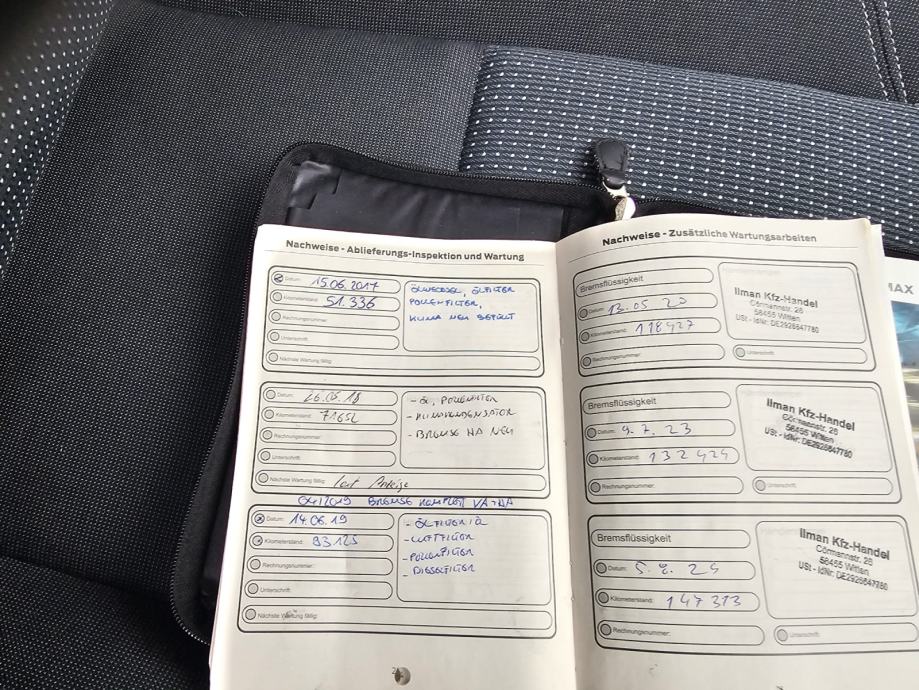 Nachweise - Ablieferungs-Inspektion und Wartung
Datum: 15.06.2017
Kilometerstand: 51.336
Rechnungsnummer:
Unterschrift:
Nächste Wartung fällig:
ÖLWECHSEL, ÖLFILTER
POLLENFILTER,
KLIMA NEU BEFÜLLT
Datum: 26.05.18
Kilometerstand: 71652
Rechnungsnummer:
Unterschrift:
Nächste Wartung fällig: laut Anzeige
- ÖL, POLLENFILTER
- KLIMAKONDENSATOR
- BREMSE HA NEU
04/2019 BREMSE KOMPLETT VA+HA
Datum: 14.06.19
Kilometerstand: 93125
Rechnungsnummer:
Unterschrift:
Nächste Wartung fällig:
- ÖLFILTER/ÖL
- LUFTFILTER
- POLLENFILTER
- DIESELFILTER
Nachweise - Zusätzliche Wartungsarbeiten
Bremsflüssigkeit
Datum: 13.05 20
Kilometerstand: 118927
Rechnungsnummer:
Ilman Kfz-Handel
Cörmannstr. 26
58455 Witten
USt - IdNr: DE2926647780
Unterschrift:
Bremsflüssigkeit
Datum: 9.7.23
Kilometerstand: 132424
Rechnungsnummer:
Ilman Kfz-Handel
Cörmannstr. 26
58455 Witten
USt - IdNr: DE2926647780
Unterschrift:
Bremsflüssigkeit
Datum: 5.8.25
Kilometerstand: 147313
Rechnungsnummer:
Ilman Kfz-Handel
Cörmannstr. 26
58455 Witten
USt - IdNr: DE2926647780
Unterschrift:
MAX